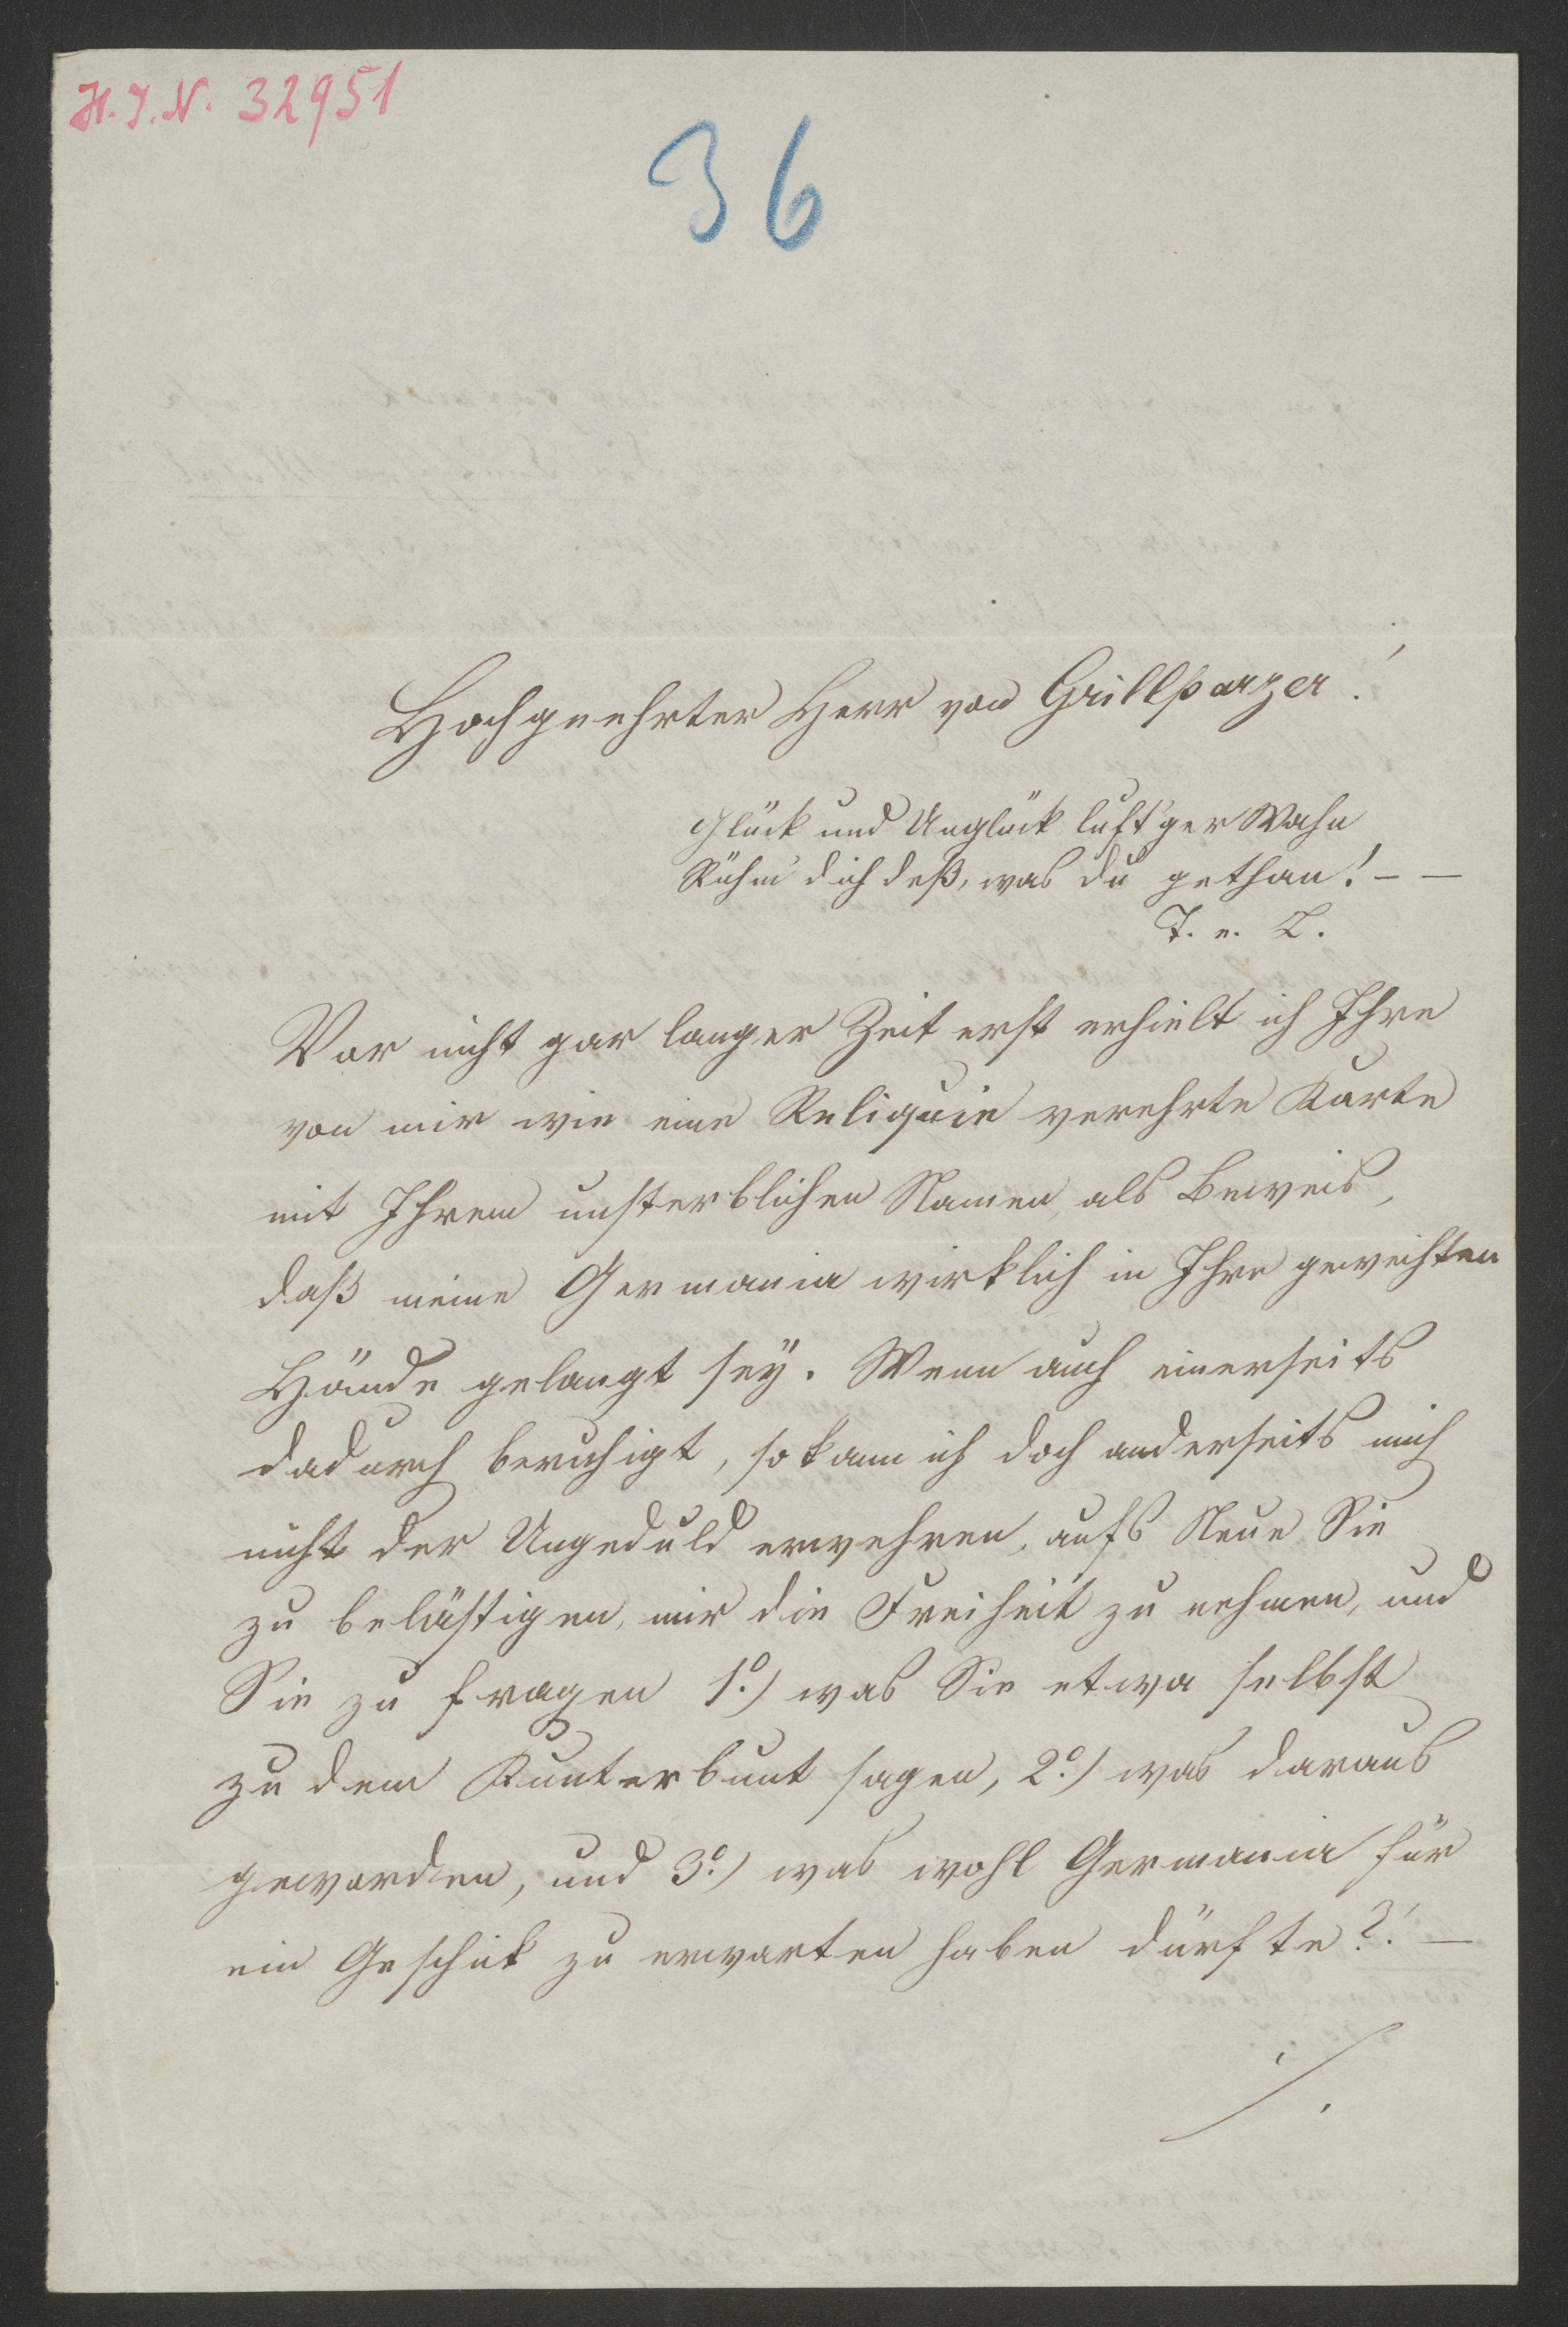 H. I. N. 32951
36
Hochgeehrter Herr von Grillparzer!
Glück und Unglück luft'ger Wahn
Rühm' dich deß, was du gethan! – –
T. e. L.
Vor nicht gar langer Zeit erst erhielt ich Ihre
von mir wie eine Reliquie verehrte Karte
mit Ihrem unsterblichen Namen, als Beweis,
daß meine Germania wirklich in Ihre geweihten
Hände gelangt sey. Wenn auch einerseits
dadurch beruhigt, so kann ich doch anderseits mich
nicht der Ungeduld erwehren, aufs Neue Sie
zu belästigen, mir die Freiheit zu nehmen, und
Sie zu fragen 1º.) was Sie etwa selbst
zu dem Kunterbunt sagen, 2º.) was daraus
geworden, und 3º.) was wohl Germania für
ein Geschik zu erwarten haben dürfte?! –
./.